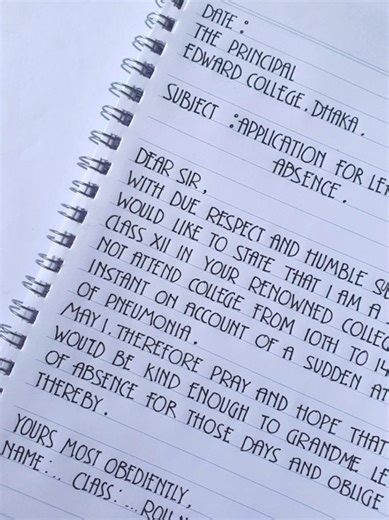 DATE :
THE PRINCIPAL
EDWARD COLLEGE, DHAKA.
SUBJECT : APPLICATION FOR
ABSENCE.
DEAR SIR,
WITH DUE RESPECT AND HUMBLE
WOULD LIKE TO STATE THAT I AM A
CLASS XII IN YOUR RENOWNED
NOT ATTEND COLLEGE FROM 10TH TO
INSTANT ON ACCOUNT OF A SUDDEN
OF PNEUMONIA.
MAY I, THEREFORE PRAY AND HOPE THAT
WOULD BE KIND ENOUGH TO GRANDME
OF ABSENCE FOR THOSE DAYS AND OBLIGE
THEREBY.
YOURS MOST OBEDIENTLY,
NAME:... CLASS:...